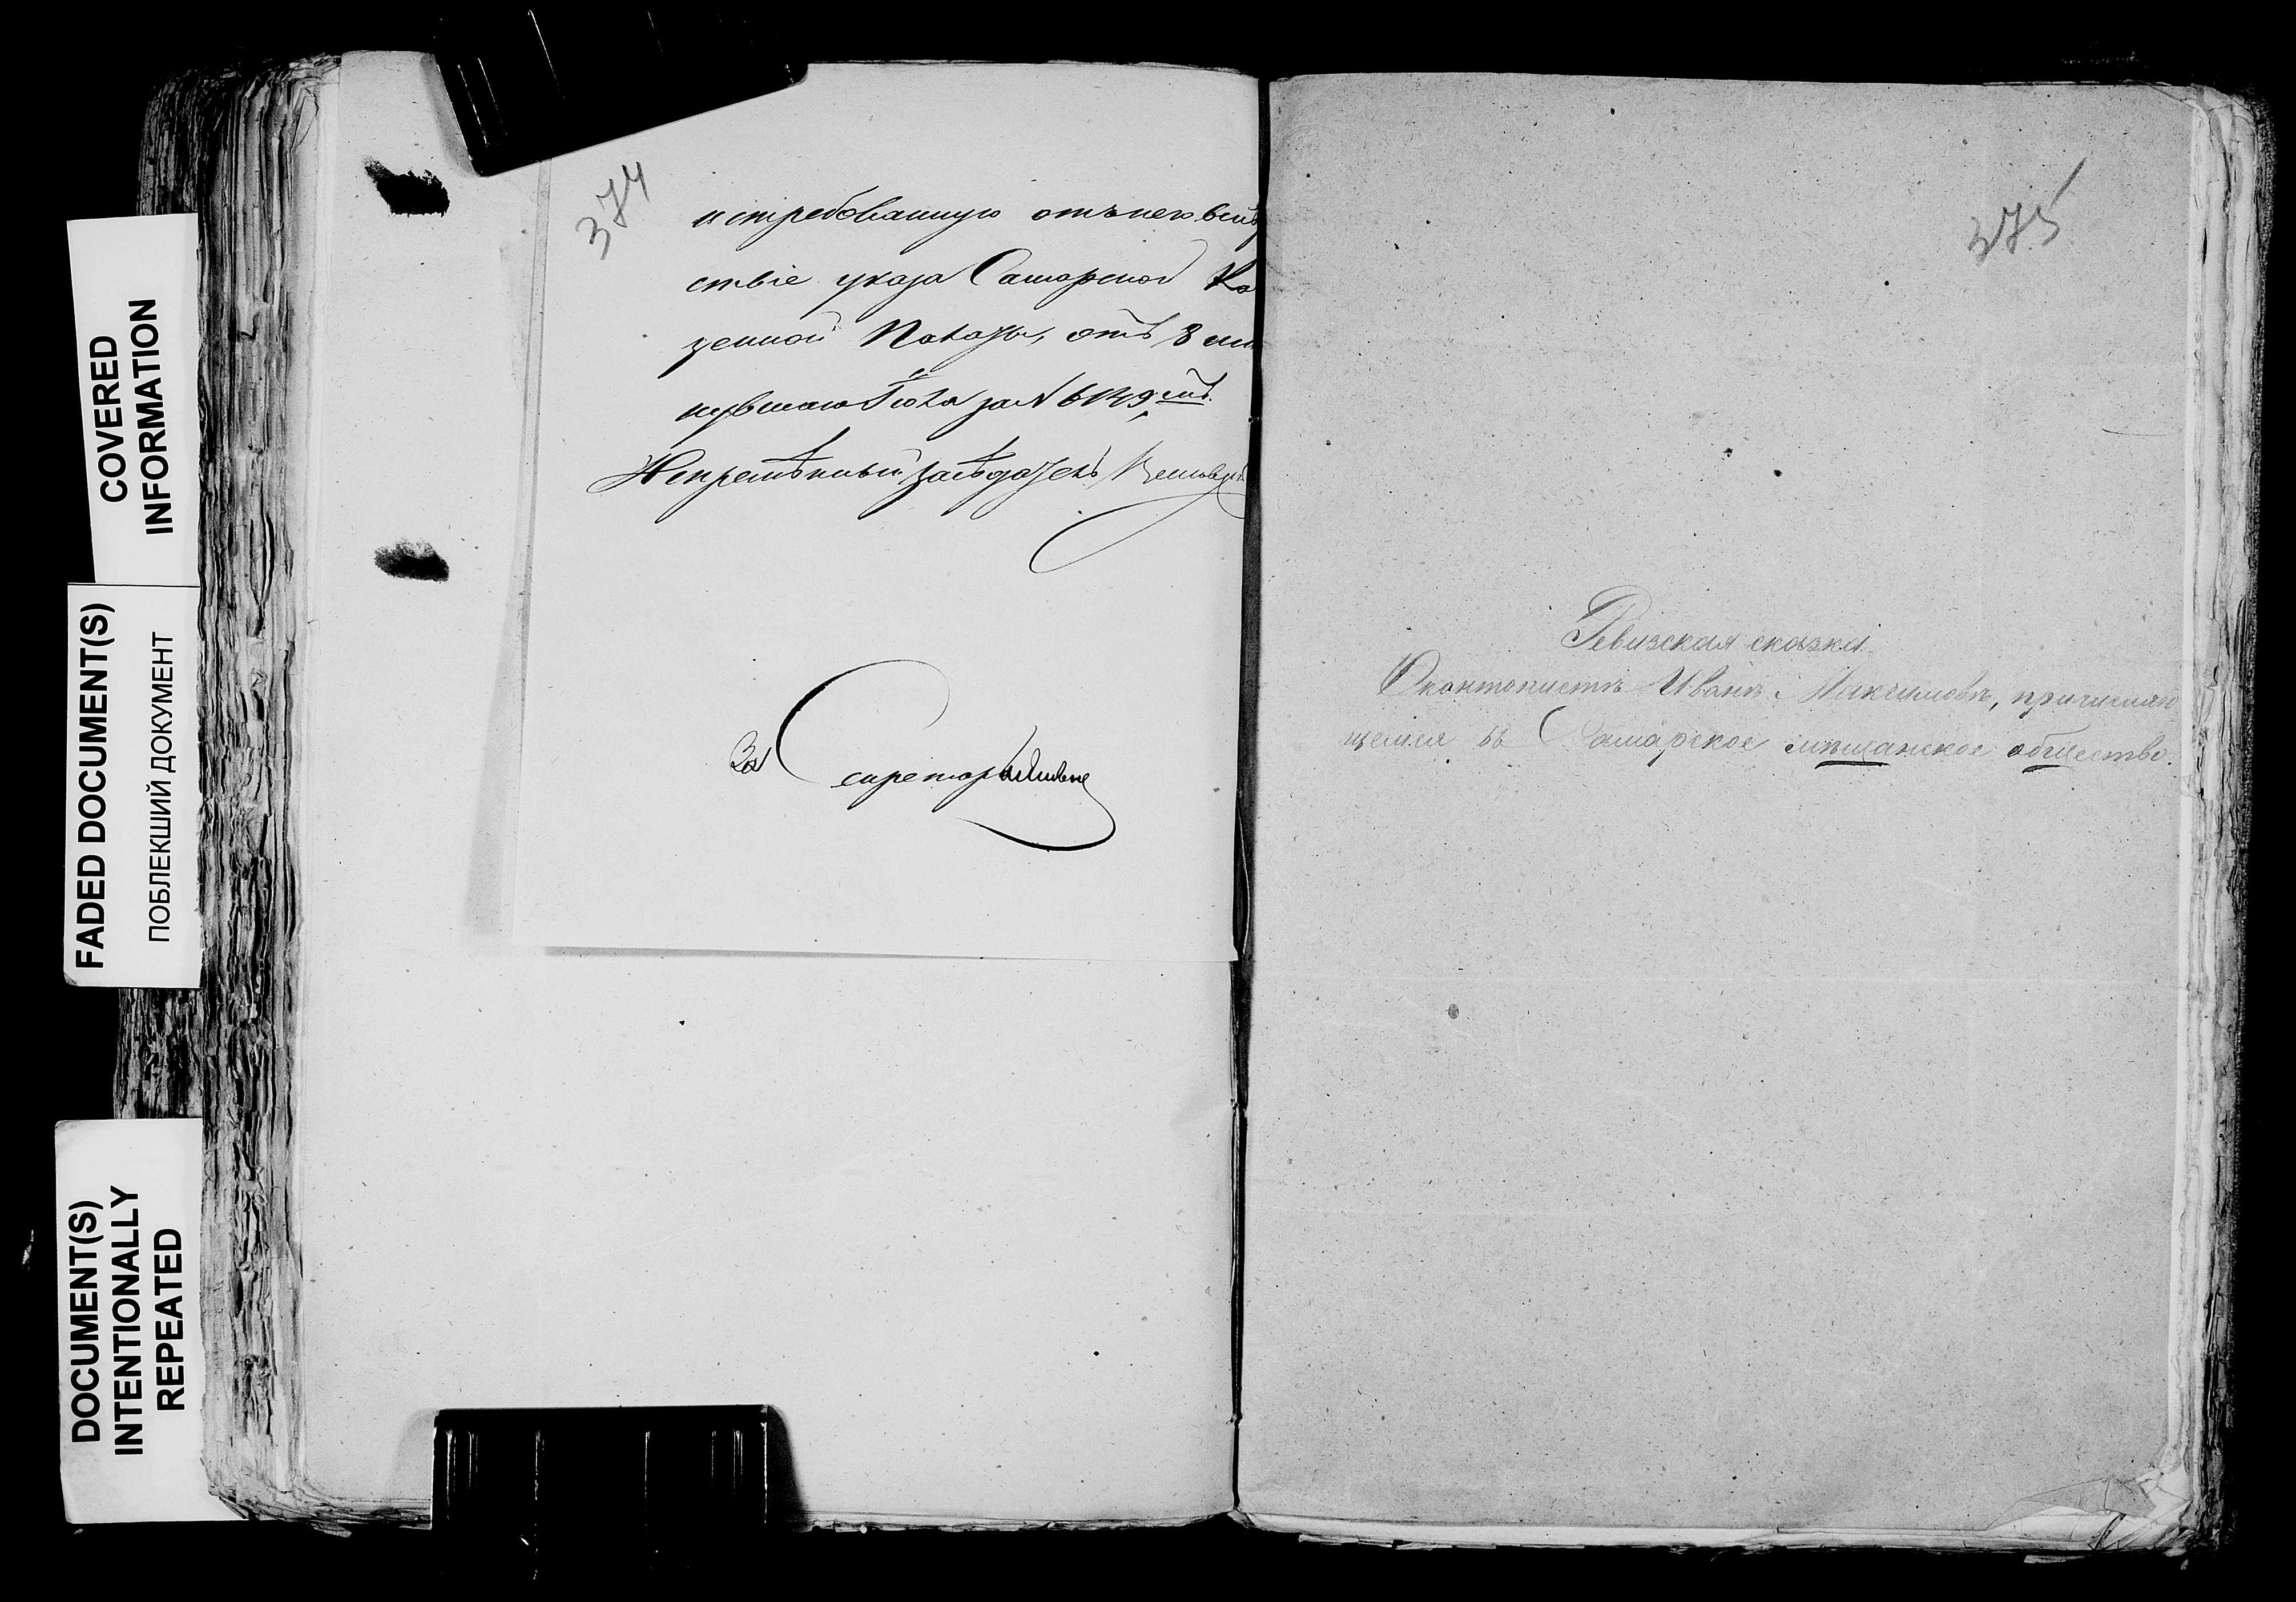 COVERED
INFORMATION
FADED DOCUMENT(S)
ПОБЛЕКШИЙ ДОКУМЕНТ
DOCUMENT(S)
INTENTIONALLY
REPEATED
374
истребованную отъ него вслѣд
ствіе указа Самарской Ка
зенной Палаты, отъ 8 ми
нувшаго Іюля за № 6149
Непремѣнный засѣдатель
За Секретаря
375
Ревизская сказка
Кантонистъ Иванъ Максимовъ, причисляю
щемся въ Самарское мѣщанское общество.